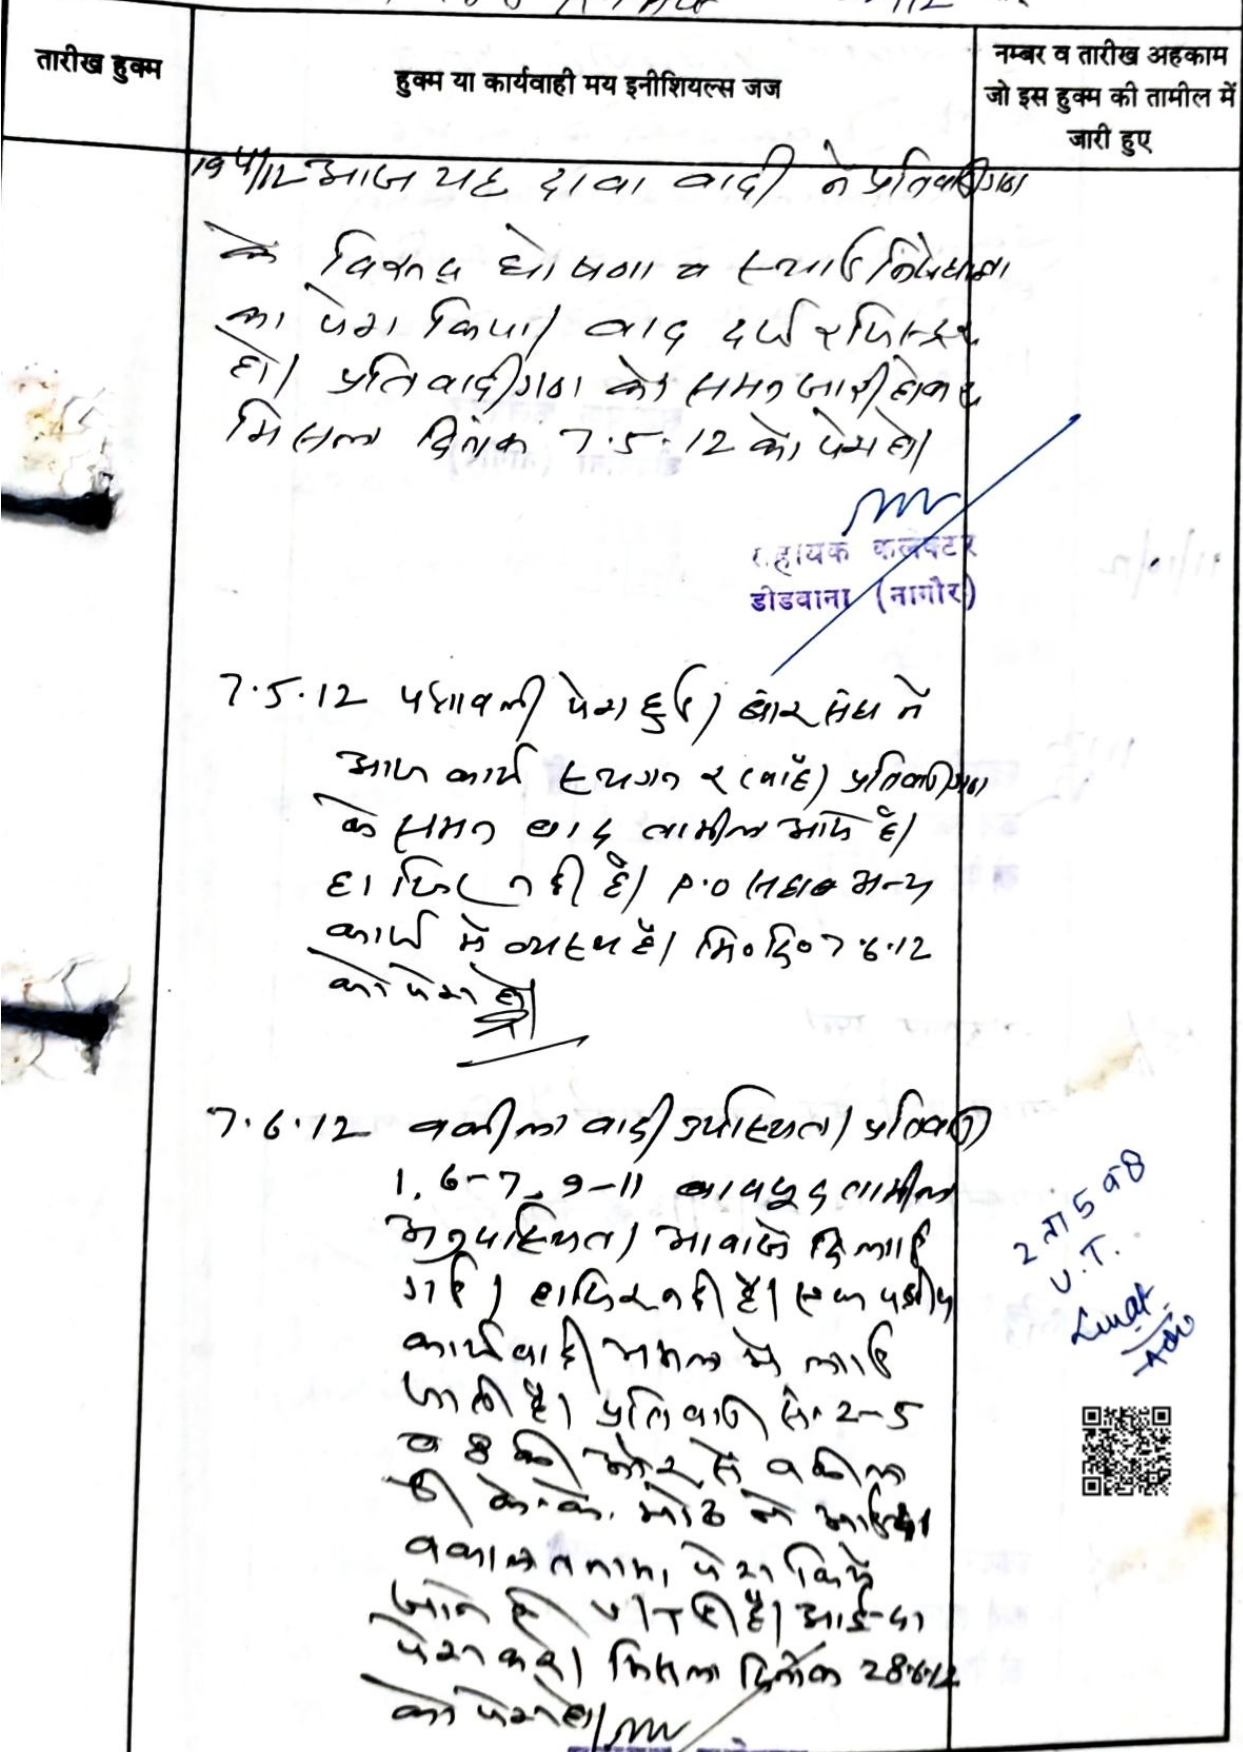 तारीख हुक्म
हुक्म या कार्यवाही मय इनीशियल्स जज
नम्बर व तारीख अहकाम
जो इस हुक्म की तामील में
जारी हुए
आज यह दावा वादी ने प्रतिवादीगण
के विरुद्ध घोषणा व स्थाई निषेधाज्ञा
का पेश किया। वाद दर्ज रजिस्टर
हो। प्रतिवादीगण को समन जारी होकर
मिसल दिनांक 7.5.12 को पेश हो।
सहायक कलेक्टर
डीडवाना (नागौर)
7.5.12 पत्रावली पेश हुई। बार संघ ने
आज कार्य स्थगन रखा है। प्रतिवादीगण
के समन बाद तामील आये है।
हाजिर नही है। P.O साहब अन्य
कार्य में व्यस्थ है। मि० दि० 7.6.12
को पेश हो।
7.6.12 वकील वादी उपस्थित। प्रतिवादी
1, 6-7, 9-11 बावजूद तामील
अनुपस्थित। आवाजे दिलाई
गई। हाजिर नही है। एक पक्षीय
कार्यवाही अमल में लाई
जाती है। प्रतिवादी सं. 2-5
व 8 की ओर से वकील
श्री के.के.
वकालतनामा पेश किये
जाने की है। आईन्दा
पेश करे। मिसल दिनांक 28.6.12
को पेश हो।
2 ता 5 व 8
U.T.